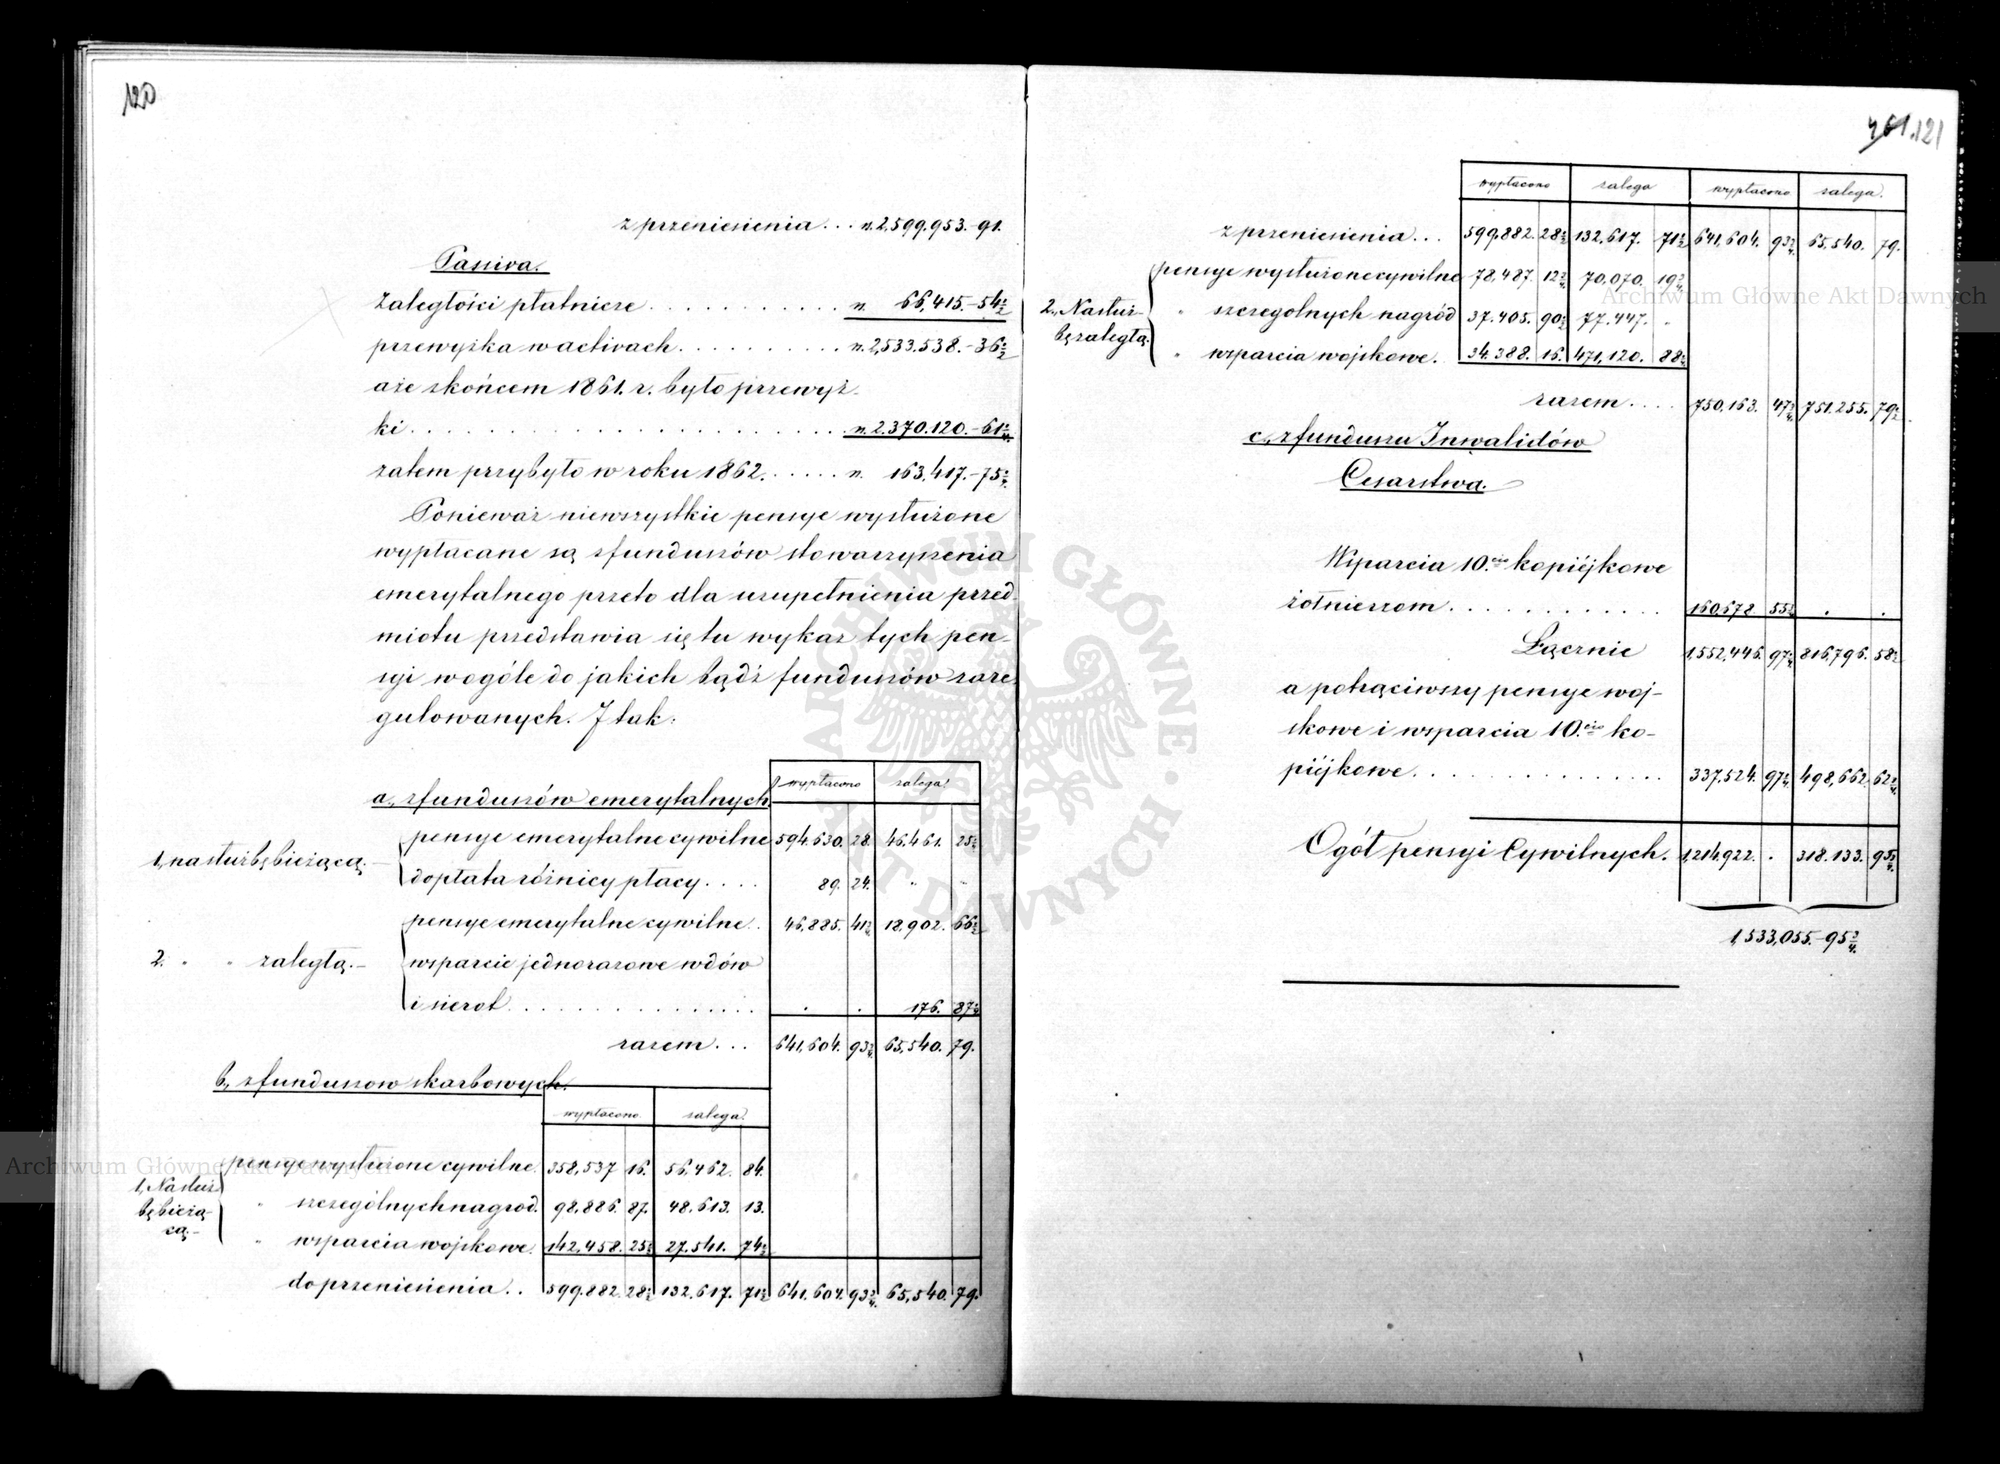 120
z przeniesienia . . . n. 2,599,953.-91.
Passiva.
Zaległości płatnicze . . . . . . . . . . n. 66,415.-54½
przewyżka w activach . . . . . . . . . . n. 2,533.538.-36½
a że z końcem 1861. r. było przewyż-
ki . . . . . . . . . . . . . . . . . . . . n. 2.370.120.-61
zatem przybyło w roku 1862. . . . . . n. 163,417.-75
Ponieważ niewszystkie pensye wysłużone
wypłacane są z funduszów stowarzyszenia
emerytalnego przeto dla uzupełnienia przed-
miotu przedstawia się tu wykaz tych pen-
syi wogóle do jakich bądź funduszów zare-
gulowanych. I tak:
wypłacono zalega
a., z funduszów emerytalnych
1, na służbę bieżącą.- pensye emerytalne cywilne 594.630. 28. 46.461. 25½
dopłata różnicy płacy . . . . 89. 24. " "
pensye emerytalne cywilne . . 46.885. 41¾ 18.902. 66½
2. " " zaległą.- wsparcie jednorazowe wdów
i sierot . . . . . . . . . . . . . . . . . 176. 87½
razem . . . 641,604. 93¾ 65,540. 79.
b., z funduszow skarbowych.
wypłacono. zalega.
pensye wysłużone cywilne. 358,537 16. 56,462. 84.
1, Na służ- " szczególnych nagrod. 98,886. 87. 48.613. 13.
bę bieżą-
cą.- " wsparcia wojskowe. 142,458. 25½ 27.541. 74½
do przeniesienia . . 599.882. 28½ 132,617. 71½ 641.604. 93¾ 65,540. 79.
121
wypłacono zalega wypłacono zalega.
z przeniesienia . . . 599.882. 28½ 132,617. 71½ 641,604. 93¾ 65,540. 79.
pensye wysłużone cywilne 78,487. 12½ 70,070. 19¾
2., Na służ- " szczegolnych nagród 37.405. 90½ 77.447. "
bę zaległą. " wsparcia wojskowe. 34.388. 16. 471,120. 88¾
razem . . . . 750,163. 47¾ 751.255. 79½
c., z funduszu Inwalidów
Cesarstwa.
Wsparcia 10.cio kopiéjkowe
żołnierzom . . . . . . . . . . . . . 160,678. 55¾ . .
Łącznie 1,552,446. 97¾ 816,796. 58½
a potrąciwszy pensye woj-
skowe i wsparcia 10.cio ko-
piéjkowe . . . . . . . . . . . . . . . 337.524. 97¾ 498,662. 62¾
Ogół pensyi Cywilnych. 1,214,922. . 318.133. 95¾
1,533,055.-95¾
Archiwum Główne Akt Dawnych
Archiwum Główne Akt Dawnych
ARCHIWUM GŁÓWNE AKT DAWNYCH